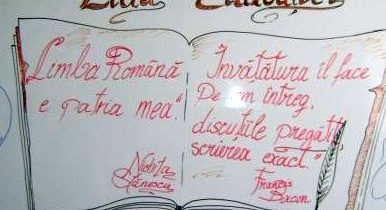 Limba Română
e patria mea."
Nichita
Stănescu
"Învătătura îl face
Pe om întreg,
discuțiile pregătit,
scrierea exact."
Francis
Bacon